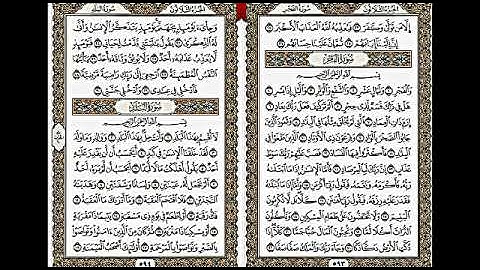 الجزء الثلاثون سورة الغاشية
إِلَّا مَن تَوَلَّىٰ وَكَفَرَ ٢٣ فَيُعَذِّبُهُ اللَّهُ الْعَذَابَ الْأَكْبَرَ ٢٤
إِنَّ إِلَيْنَا إِيَابَهُمْ ٢٥ ثُمَّ إِنَّ عَلَيْنَا حِسَابَهُم ٢٦
سورة الفجر
بِسْمِ اللَّهِ الرَّحْمَٰنِ الرَّحِيمِ
وَالْفَجْرِ ١ وَلَيَالٍ عَشْرٍ ٢ وَالشَّفْعِ وَالْوَتْرِ ٣ وَاللَّيْلِ إِذَا يَسْرِ ٤
هَلْ فِي ذَٰلِكَ قَسَمٌ لِّذِي حِجْرٍ ٥ أَلَمْ تَرَ كَيْفَ فَعَلَ رَبُّكَ بِعَادٍ ٦ إِرَمَ
ذَاتِ الْعِمَادِ ٧ الَّتِي لَمْ يُخْلَقْ مِثْلُهَا فِي الْبِلَادِ ٨ وَثَمُودَ الَّذِينَ
جَابُوا الصَّخْرَ بِالْوَادِ ٩ وَفِرْعَوْنَ ذِي الْأَوْتَادِ ١٠ الَّذِينَ طَغَوْا فِي
الْبِلَادِ ١١ فَأَكْثَرُوا فِيهَا الْفَسَادَ ١٢ فَصَبَّ عَلَيْهِمْ رَبُّكَ سَوْطَ
عَذَابٍ ١٣ إِنَّ رَبَّكَ لَبِالْمِرْصَادِ ١٤ فَأَمَّا الْإِنسَانُ إِذَا مَا ابْتَلَاهُ
رَبُّهُ فَأَكْرَمَهُ وَنَعَّمَهُ فَيَقُولُ رَبِّي أَكْرَمَنِ ١٥ وَأَمَّا إِذَا مَا ابْتَلَاهُ
فَقَدَرَ عَلَيْهِ رِزْقَهُ فَيَقُولُ رَبِّي أَهَانَنِ ١٦ كَلَّا بَل لَّا تُكْرِمُونَ
الْيَتِيمَ ١٧ وَلَا تَحَاضُّونَ عَلَىٰ طَعَامِ الْمِسْكِينِ ١٨ وَتَأْكُلُونَ
التُّرَاثَ أَكْلًا لَّمًّا ١٩ وَتُحِبُّونَ الْمَالَ حُبًّا جَمًّا ٢٠ كَلَّا إِذَا
دُكَّتِ الْأَرْضُ دَكًّا دَكًّا ٢١ وَجَاءَ رَبُّكَ وَالْمَلَكُ صَفًّا صَفًّا ٢٢
٥٩٣
الجزء الثلاثون سورة البلد
وَجِايءَ يَوْمَئِذٍ بِجَهَنَّمَ يَوْمَئِذٍ يَتَذَكَّرُ الْإِنسَانُ وَأَنَّىٰ
لَهُ الذِّكْرَىٰ ٢٣ يَقُولُ يَا لَيْتَنِي قَدَّمْتُ لِحَيَاتِي ٢٤ فَيَوْمَئِذٍ لَّا يُعَذِّبُ
عَذَابَهُ أَحَدٌ ٢٥ وَلَا يُوثِقُ وَثَاقَهُ أَحَدٌ ٢٦ يَا أَيَّتُهَا
النَّفْسُ الْمُطْمَئِنَّةُ ٢٧ ارْجِعِي إِلَىٰ رَبِّكِ رَاضِيَةً مَّرْضِيَّةً ٢٨
فَادْخُلِي فِي عِبَادِي ٢٩ وَادْخُلِي جَنَّتِي ٣٠
سورة البلد
بِسْمِ اللَّهِ الرَّحْمَٰنِ الرَّحِيمِ
لَا أُقْسِمُ بِهَٰذَا الْبَلَدِ ١ وَأَنتَ حِلٌّ بِهَٰذَا الْبَلَدِ ٢ وَوَالِدٍ وَمَا وَلَدَ
٣ لَقَدْ خَلَقْنَا الْإِنسَانَ فِي كَبَدٍ ٤ أَيَحْسَبُ أَن لَّن يَقْدِرَ عَلَيْهِ
أَحَدٌ ٥ يَقُولُ أَهْلَكْتُ مَالًا لُّبَدًا ٦ أَيَحْسَبُ أَن لَّمْ يَرَهُ أَحَدٌ
٧ أَلَمْ نَجْعَل لَّهُ عَيْنَيْنِ ٨ وَلِسَانًا وَشَفَتَيْنِ ٩ وَهَدَيْنَاهُ
النَّجْدَيْنِ ١٠ فَلَا اقْتَحَمَ الْعَقَبَةَ ١١ وَمَا أَدْرَاكَ مَا الْعَقَبَةُ
١٢ فَكُّ رَقَبَةٍ ١٣ أَوْ إِطْعَامٌ فِي يَوْمٍ ذِي مَسْغَبَةٍ ١٤ يَتِيمًا ذَا مَقْرَبَةٍ
١٥ أَوْ مِسْكِينًا ذَا مَتْرَبَةٍ ١٦ ثُمَّ كَانَ مِنَ الَّذِينَ آمَنُوا وَتَوَاصَوْا
بِالصَّبْرِ وَتَوَاصَوْا بِالْمَرْحَمَةِ ١٧ أُولَٰئِكَ أَصْحَابُ الْمَيْمَنَةِ ١٨
٥٩٤